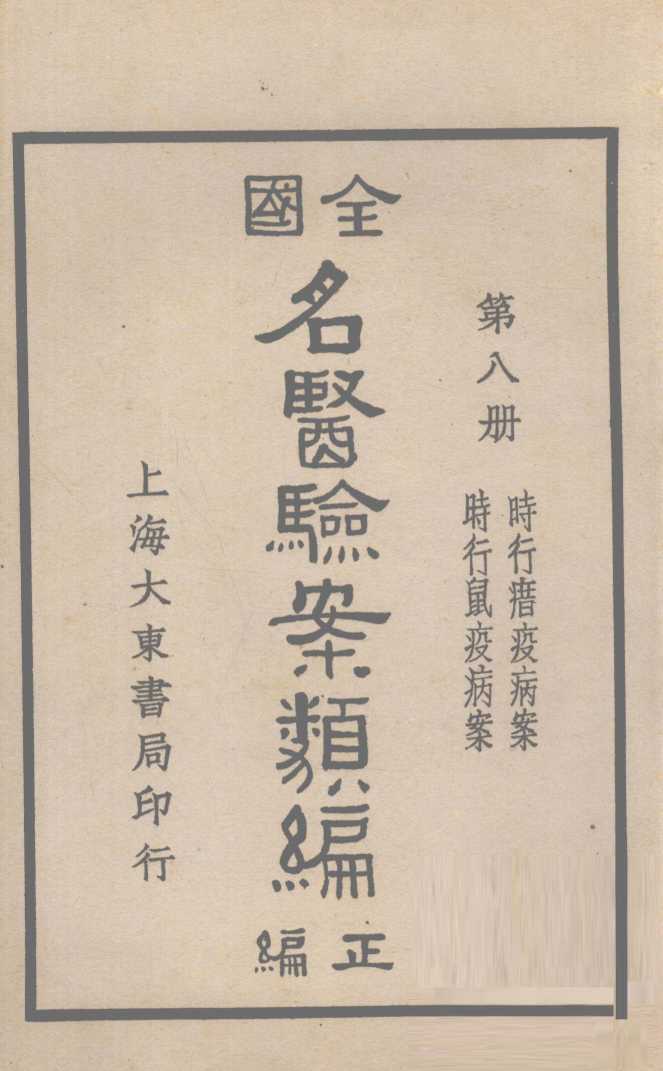 第八册
時行瘄疫病案
時行鼠疫病案
全國
名醫驗案類編
正編
上海大東書局印行